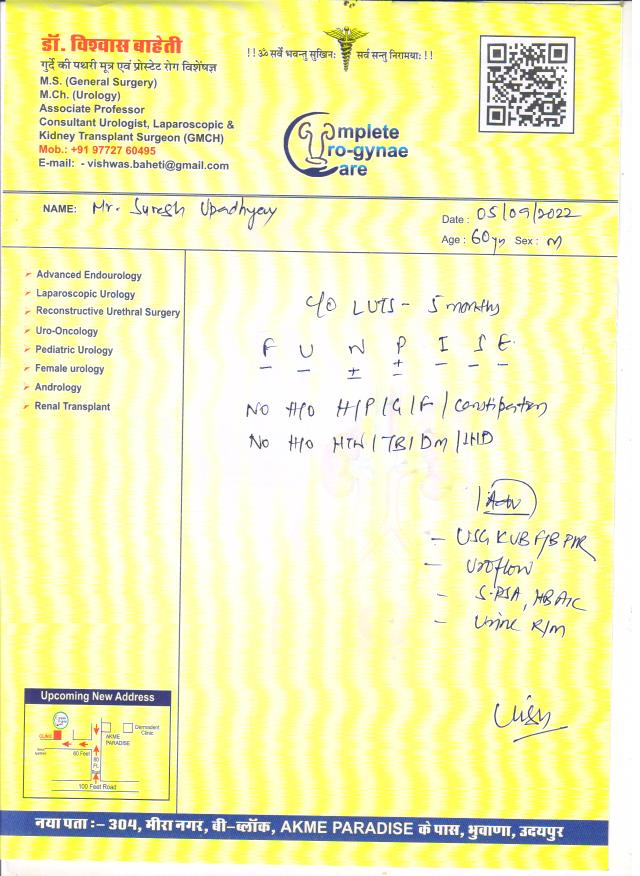 डॉ. विश्वास बाहेती
गुर्दे की पथरी मूत्र एवं प्रोस्टेट रोग विशेषज्ञ
M.S. (General Surgery)
M.Ch. (Urology)
Associate Professor
Consultant Urologist, Laparoscopic &
Kidney Transplant Surgeon (GMCH)
Mob.: +91 97727 60495
E-mail: - vishwas.baheti@gmail.com
!! ॐ सर्वे भवन्तु सुखिनः सर्व सन्तु निरामयाः !!
Complete
Uro-gynae
Care
NAME: Mr. Suresh Upadhyay
Date : 05/09/2022
Age : 60yr Sex : M
Advanced Endourology
Laparoscopic Urology
Reconstructive Urethral Surgery
Uro-Oncology
Pediatric Urology
Female urology
Andrology
Renal Transplant
C/O LUTS - 5 months
F U N P I S E
- - ± ± - - -
NO H/O H/P/G/F/Constipation
NO H/O HTN/TB/DM/IHD
Adv
- USG KUB F/B PVR
- Uroflow
- S.PSA, HBA1C
- Urine R/M
Upcoming New Address
CLINIC
AKME
PARADISE
Dermadent
Clinic
60 Feet
60
Ft.
100 Feet Road
नया पता :– 304, मीरा नगर, बी–ब्लॉक, AKME PARADISE के पास, भुवाणा, उदयपुर